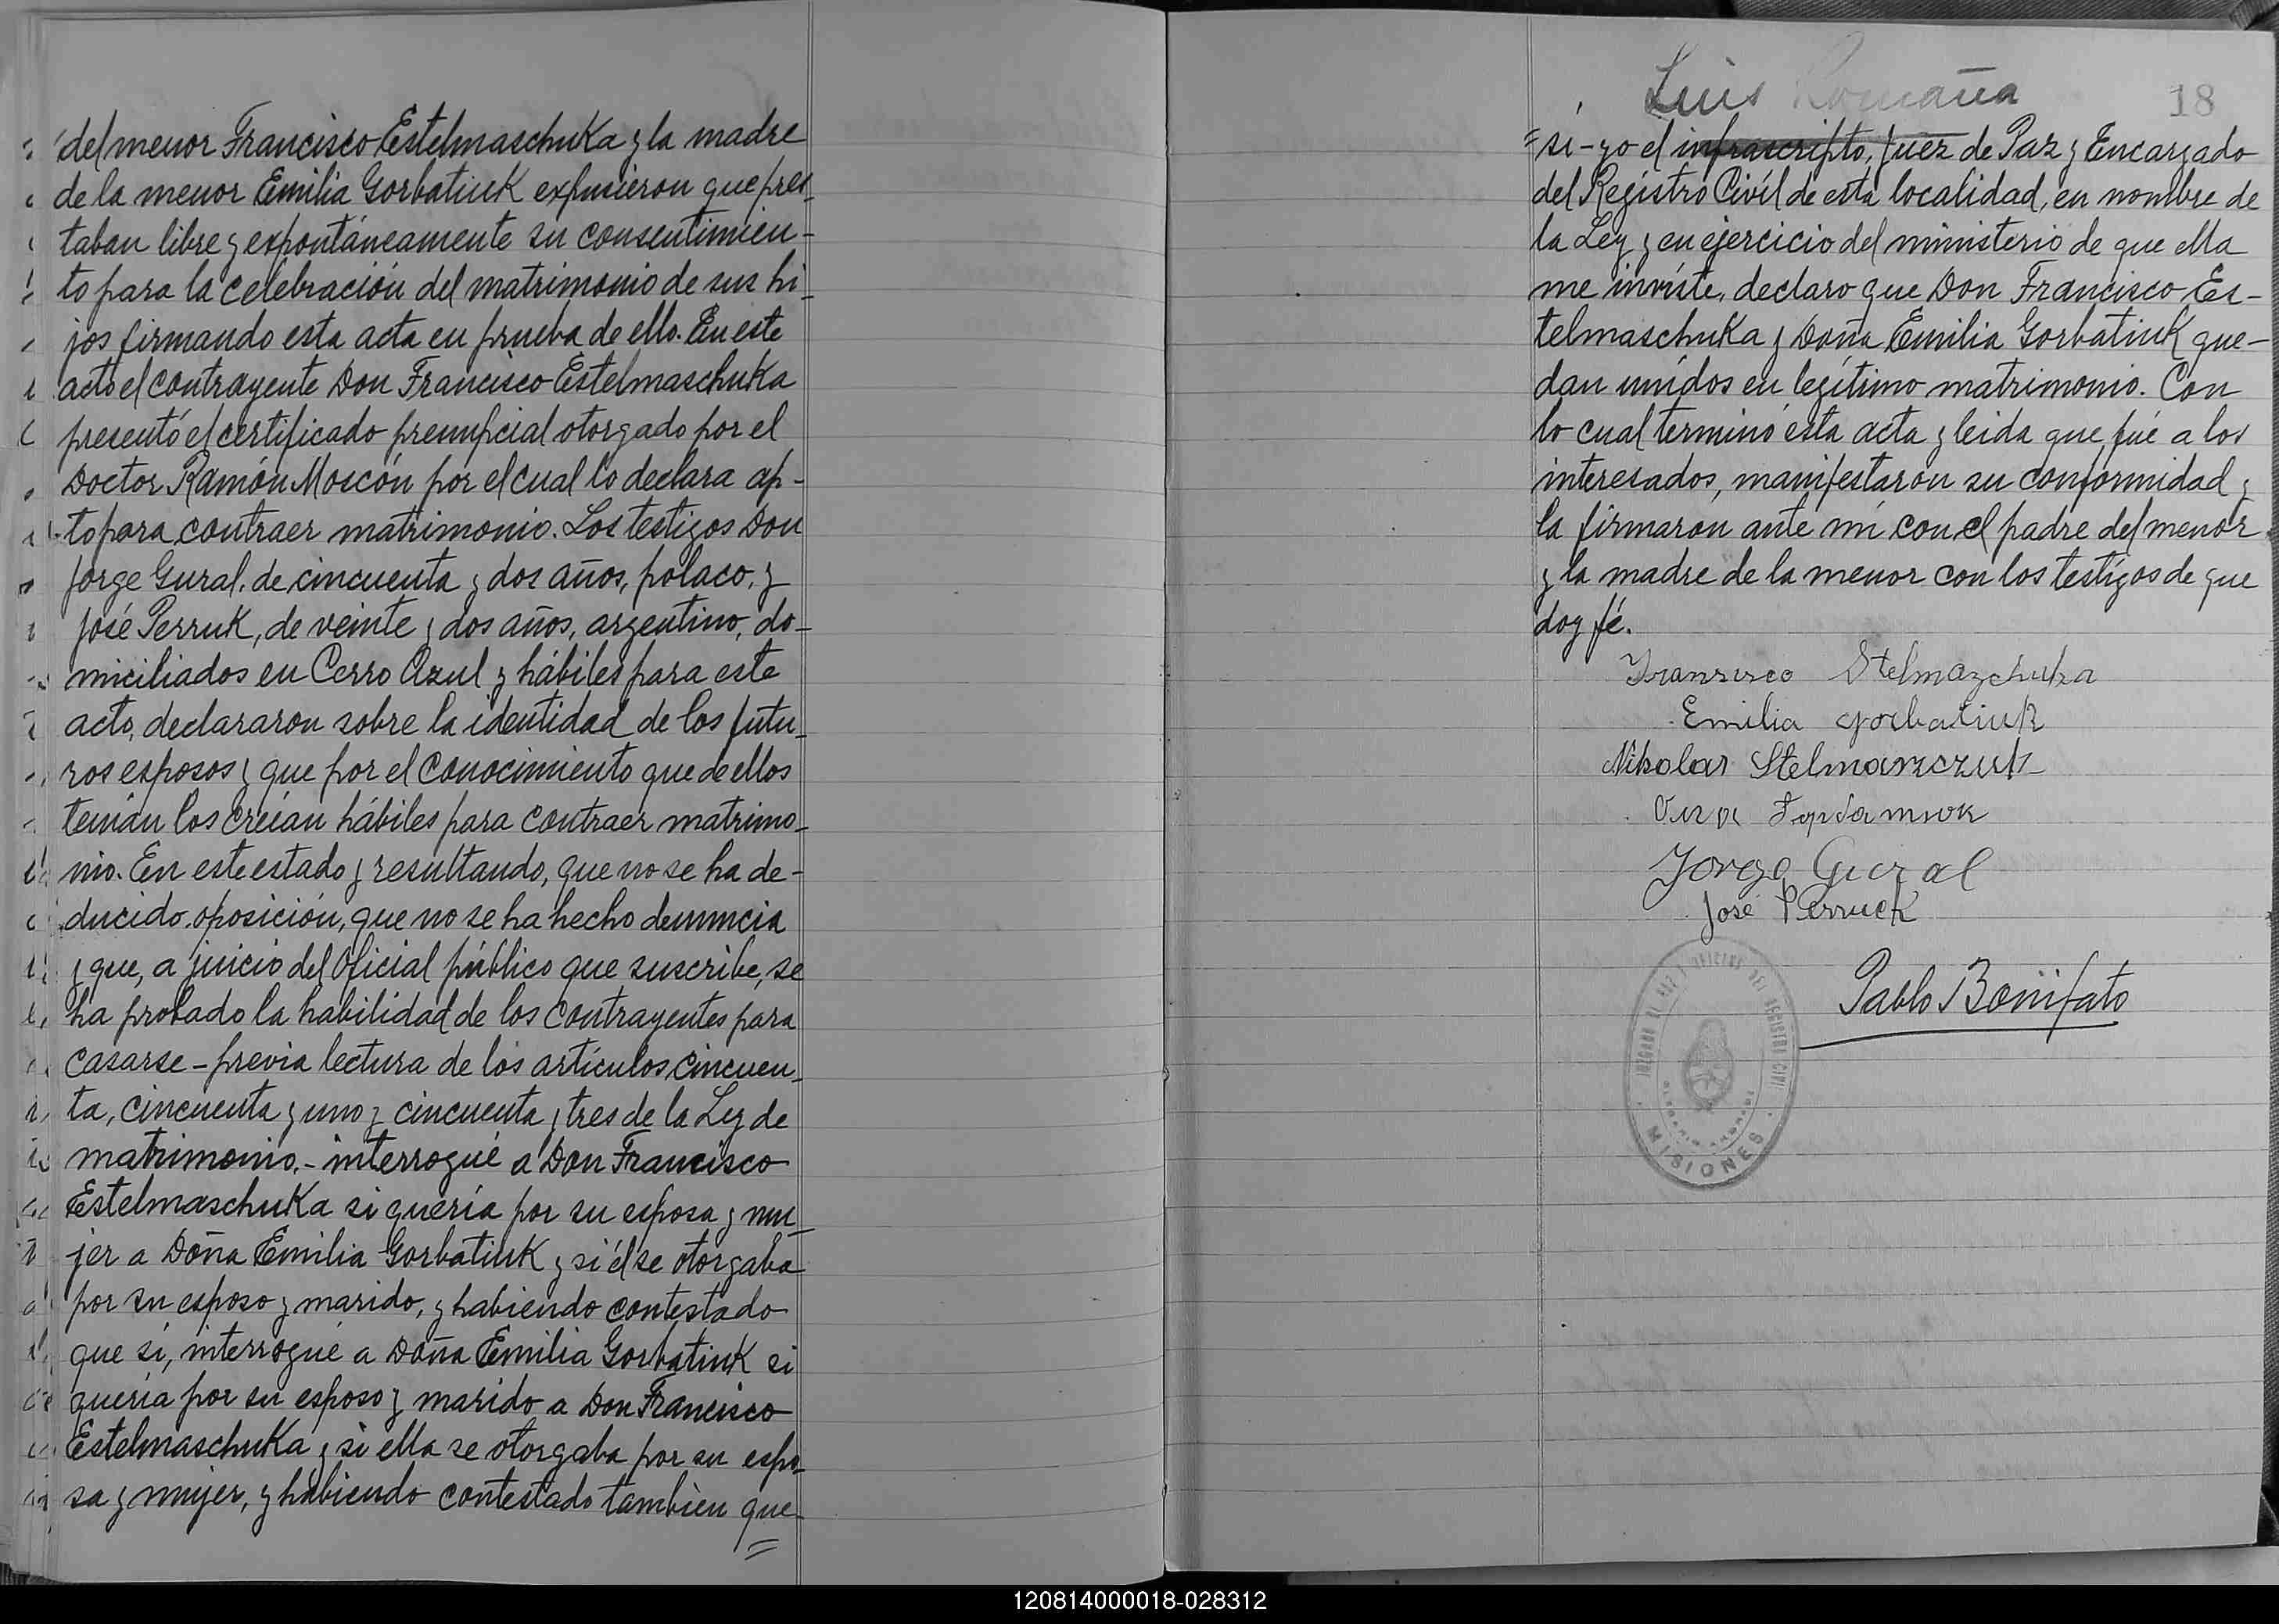 del menor Francisco Estelmaschuka y la madre
de la menor Emilia Gorbatiuk expusieron que pres-
taban libre y expontáneamente su consentimien-
to para la celebración del matrimonio de sus hi-
jos firmando esta acta en prueba de ello. En este
acto el contrayente Don Francisco Estelmaschuka
presentó el certificado prenupcial otorgado por el
Doctor Ramón Moscón por el cual lo declara ap-
to para contraer matrimonio. Los testigos Don
Jorge Gural, de cincuenta y dos años, polaco, y
José Perruk, de veinte y dos años, argentino, do-
miciliados en Cerro Azul y hábiles para este
acto, declararon sobre la identidad de los futu-
ros esposos y que por el conocimiento que de ellos
tenían los creían hábiles para contraer matrimo-
nio. En este estado y resultando, que no se ha de-
ducido oposición, que no se ha hecho denuncia
y que, a juicio del Oficial público que suscribe, se
ha probado la habilidad de los contrayentes para
casarse - previa lectura de los artículos cincuen-
ta, cincuenta y uno y cincuenta y tres de la Ley de
matrimonio. - interrogué a Don Francisco
Estelmaschuka si quería por su esposa y mu-
jer a Doña Emilia Gorbatiuk y si él se otorgaba
por su esposo y marido, y habiendo contestado
que sí, interrogué a Doña Emilia Gorbatiuk si
quería por su esposo y marido a Don Francisco
Estelmaschuka y si ella se otorgaba por su espo-
sa y mujer, y habiendo contestado también que
=
Luis Romaña
18
=sí - yo el infrascripto, Juez de Paz y Encargado
del Registro Civil de esta localidad, en nombre de
la Ley y en ejercicio del ministerio de que ella
me inviste, declaro que Don Francisco Es-
telmaschuka y Doña Emilia Gorbatiuk que-
dan unidos en legítimo matrimonio. Con
lo cual terminó esta acta y leida que fué a los
interesados, manifestaron su conformidad y
la firmaron ante mí con el padre del menor
y la madre de la menor con los testigos de que
doy fé.
Fransisco Stelmazchuka
Emilia Gorbatiuk
Nikolai Stelmaszczuk
Jorge Gural
José Perruck
Pablo Bonifato
JUZGADO DE PAZ Y OFICINA DEL REGISTRO CIVIL
MISIONES
120814000018-028312